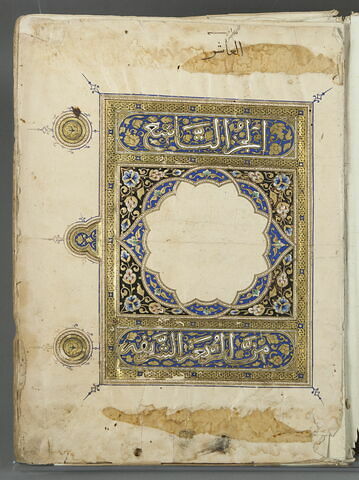 العاشر
الجزء التاسع
من الربعة الشريفة